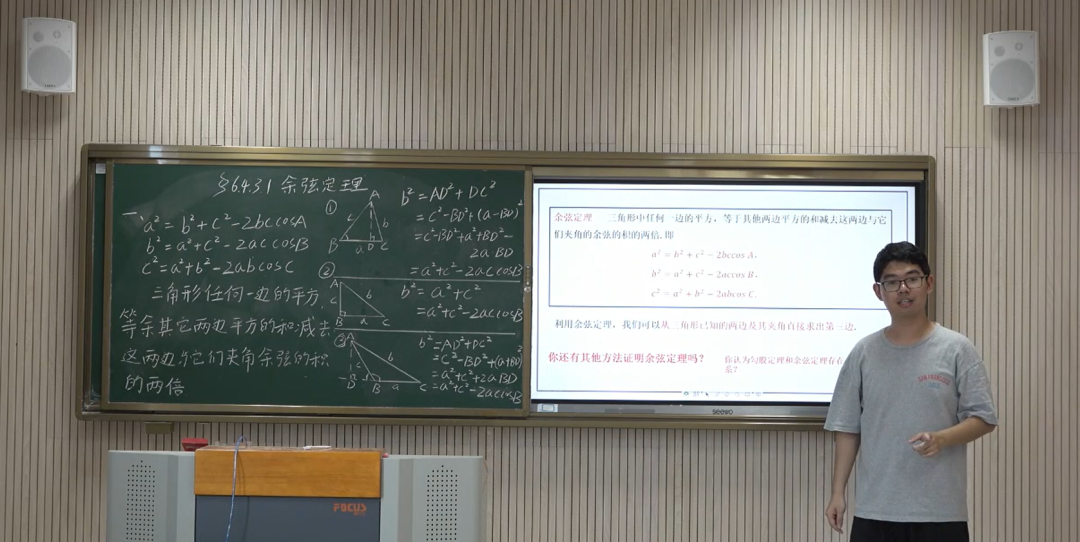 §6.4.3.1 余弦定理
一、a²=b²+c²-2bccosA
b²=a²+c²-2accosB
c²=a²+b²-2abcosC
三角形任何一边的平方,
等余其它两边平方的和减去
这两边与它们夹角余弦的积
的两倍
①
A
c
b
B
a
D
C
b²=AD²+DC²
=c²-BD²+(a-BD)²
=c²-BD²+a²+BD²-
2aBD
=a²+c²-2accosB
②
A
c
b
B
a
C
b²=a²+c²
=a²+c²-2accosB
③
A
c
b
D
B
a
C
b²=AD²+DC²
=c²-BD²+(a+BD)²
=a²+c²+2aBD
=a²+c²-2accosB
余弦定理 三角形中任何一边的平方,等于其他两边平方的和减去这两边与它
们夹角的余弦的积的两倍.即
a²=b²+c²-2bccos A,
b²=a²+c²-2accos B,
c²=a²+b²-2abcos C.
利用余弦定理,我们可以从三角形已知的两边及其夹角直接求出第三边.
你还有其他方法证明余弦定理吗?
你认为勾股定理和余弦定理存在
系?
seewo
FOCUS
SAN FRANCISCO